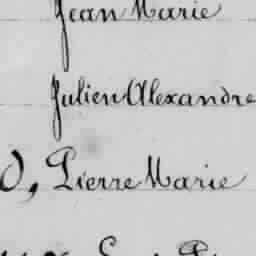 Jean Marie
Julien Alexandre
O, Pierre Marie